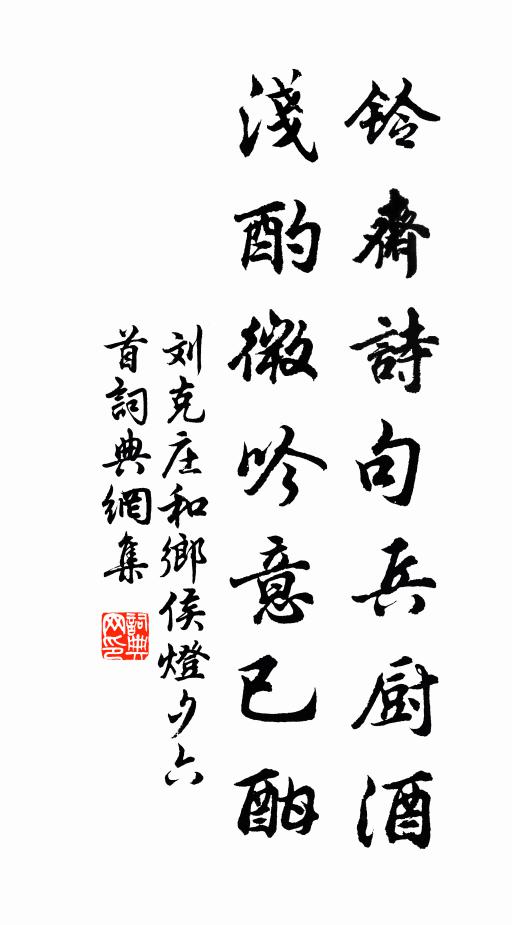 鈴齋詩句兵厨酒
淺酌微吟意已酣
刘克庄和鄉侯燈夕六
首詞典網集
詞典
网印